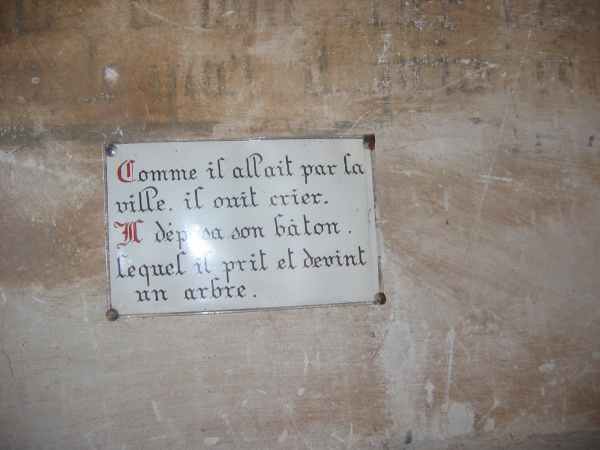 Comme il allait par la
ville. il ouit crier.
Il déposa son bâton.
lequel il prit et devint
un arbre.